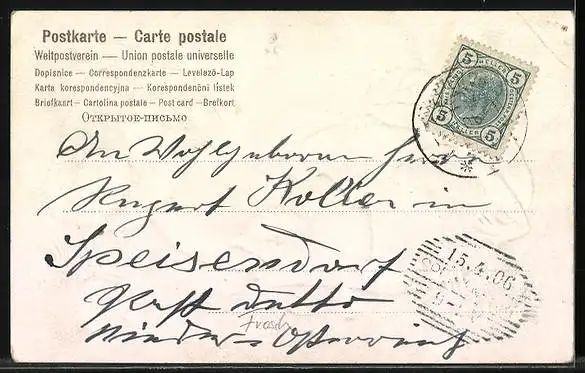 Postkarte — Carte postale
Weltpostverein — Union postale universelle
Dopisnice — Correspondenzkarte — Levelező-Lap
Karta korespondencyjna — Korespondenční lístek
Briefkaart — Cartolina postale — Post card — Brefkort
ОТКРЫТОЕ-ПИСЬМО
5 HELLER 5
5 HELLER 5
An Wohlgeboren Herrn
August Koller in
Speisendorf
15.4.06
Post detto
frosch
Nieder-Österreich